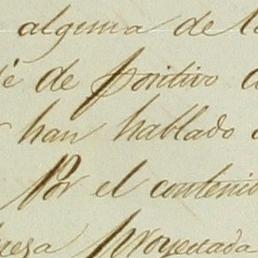 alguna de l
é de positivo
han hablado
Por el contenid
resa proyectada